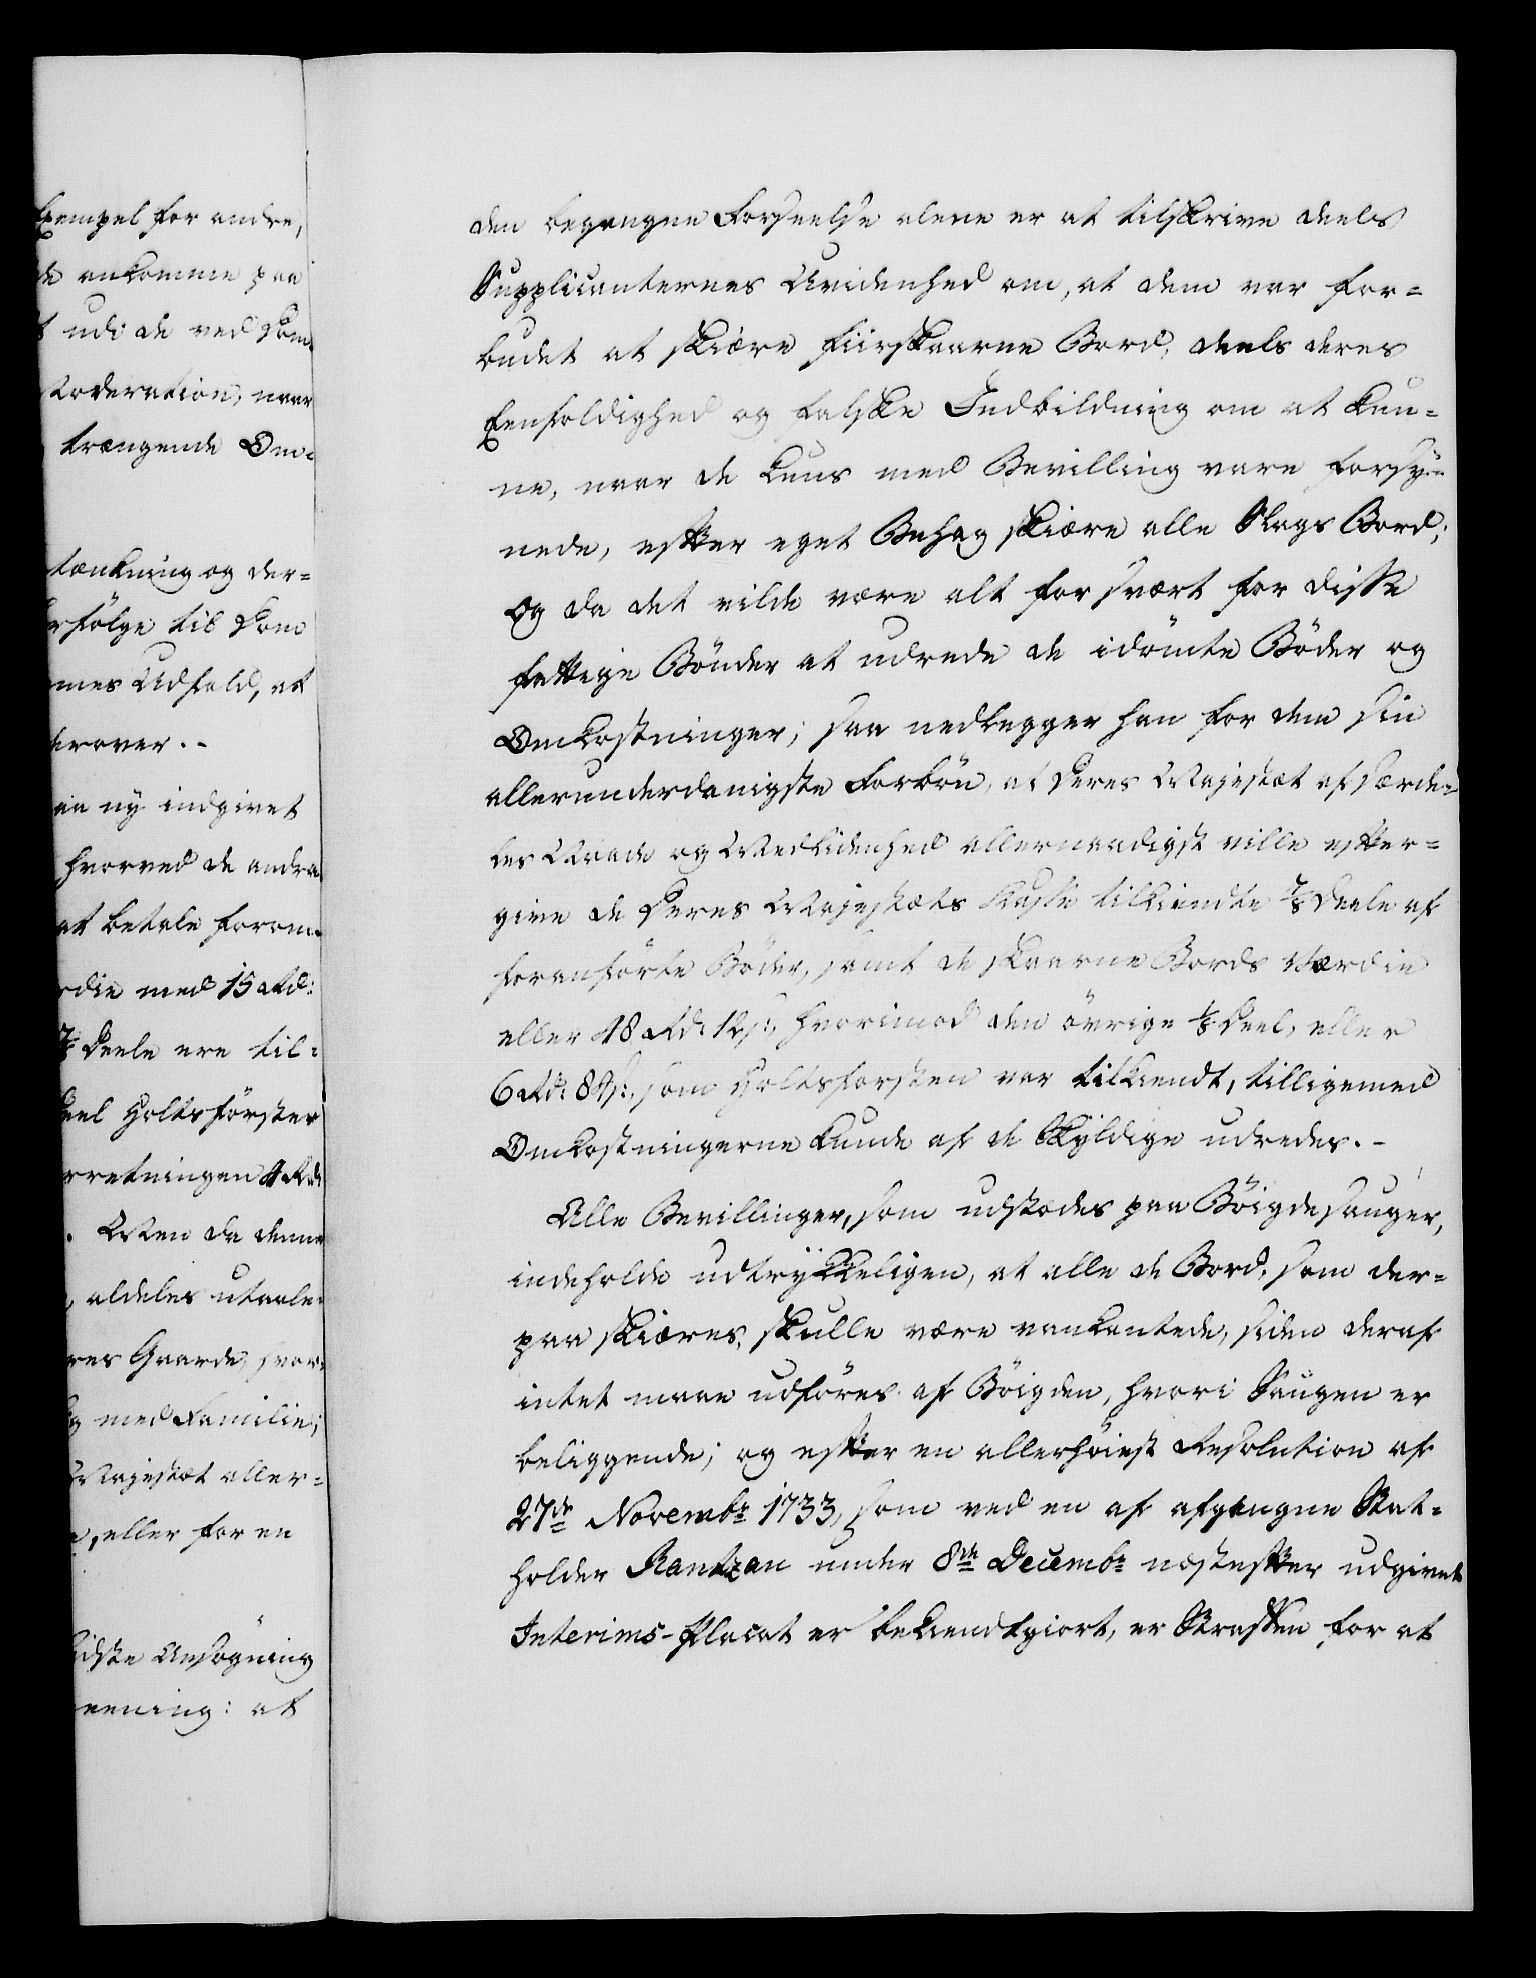 Exempel for andre,
de ankomme paa
udi de ved Dom-
Moderation, naar
trængende Om-
tænkning og der-
følge til Dom
mes Udfald, at
derover.-
ny indgivet
hvorved de andra
at betale forom-
die med 15 Rd:
7/8 Deele ere til-
Deel Holtsförster
rretningen 4 Rd
. Men da denne
, aldeles utaale-
res Gaarde, hvor-
og med Familie;
Majestæt aller-
, eller for en
sidste Ansögning
eening: at
den begangne Forseelse alene er at tilskrive deels
Supplicanternes Uvidenhed om, at dem var for-
budet at skiære fiirskaarne Bord, deels deres
Eenfoldighed og falske Indbildning om at kun-
ne, naar de kuns med Bevilling vare forsÿ-
nede, efter eget Behag skiære alle Slags Bord;
og da det vilde være alt for svært for disse
fattige Bönder at udrede de idömte Böder og
Omkostninger; saa nedlegger han for dem sin
allerunderdanigste Forbön, at Deres Majestæt af særde-
les Naade og Medlidenhed allernaadigst ville efter-
give de Deres Majestæts Kasse tilkiendte 7/8 Deele af
foranförte Böder, samt de skaarne Bords Værdie
eller 48 Rd: 12 s:, hvorimod den övrige 1/8 Deel, eller
6 Rd: 84 s:, som Holtsforsten var tilkiendt, tilligemed
Omkostningerne kunde af de Skÿldige udredes.-
Alle Bevillinger, som udstædes paa Böigdesauger,
indeholde udtrÿkkeligen, at alle de Bord, som der-
paa skiæres, skulle være vankantede, siden deraf
intet maae udföres af Böigden, hvori Saugen er
beliggende; og efter en allerhöiest Resolution af
27de Novembr 1733, som ved en af afgangne Stat-
holder Rantzau under 8de Decembr næstefter udgivet
Interims-Placat er bekiendtgiort, er Straffen for at